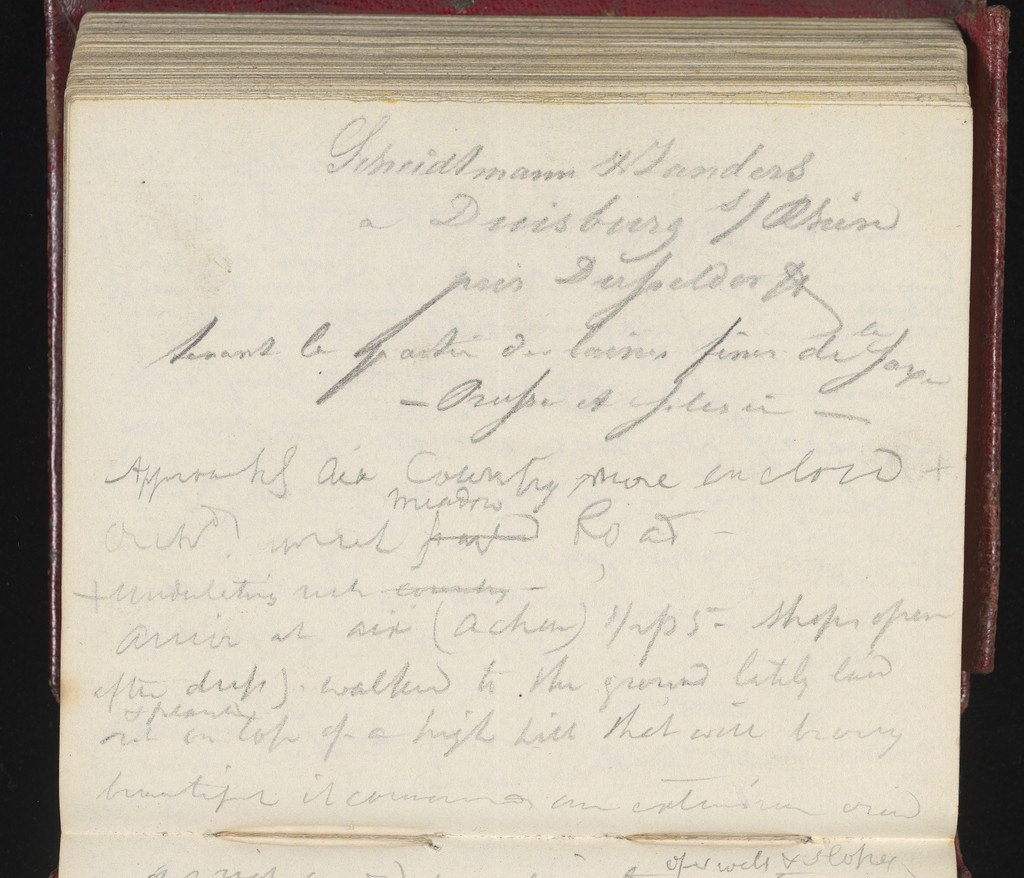 Scheidtmann & Sanders
a Duisburg s/ Rhin
près Dusseldorff
tenant la partie des laines fines de la Saxe
– Prusse et Silesie –
Approach Aix Country more enclosed +
Orchd. meadow Road –
+ undulating rich country –
arrive at Aix (Achen) 1/2 p 5 – Shops open
after dusk). walked to the ground lately laid
out & planted on top of a high hill that will be very
beautiful it commands an extensive view
of wells & slopes